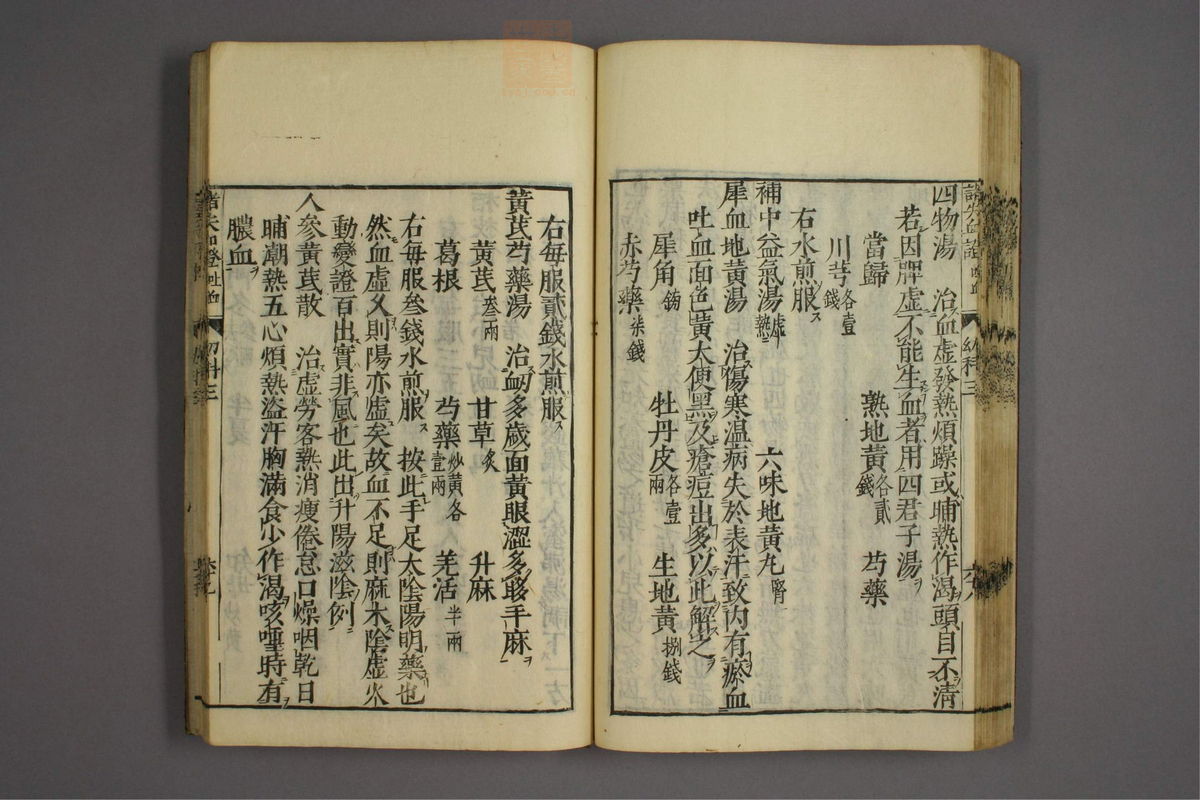 四物湯 治血虚發熱煩躁或晡熱作渴頭目不清
若因脾虚不能生血者用四君子湯
當歸 熟地黃各貳錢 芍藥
川芎各壹錢
右水煎服
補中益氣湯虚熱 六味地黃丸腎
犀血地黃湯 治傷寒温病失於表汗致内有瘀血
吐血面色黃大便黑及瘡痘出多以此解之
犀角 牡丹皮各壹兩 生地黃捌錢
赤芍藥柒錢
右每服貳錢水煎服
黃芪芍藥湯 治衂血多歲面黃眼澀多眵手麻
黃芪叁兩 甘草炙 升麻
葛根 芍藥炒黃各壹兩 羌活半兩
右每服叁錢水煎服 按此手足太陰陽明藥也
然血虚乆則陽亦虚矣故血不足則麻木陰虚火
動變證百出實非風也此出升陽滋陰例
人參黃芪散 治虚勞客熱消瘦倦怠口燥咽乾日
晡潮熱五心煩熱盗汗胸滿食少作渴咳嗽時有
膿血